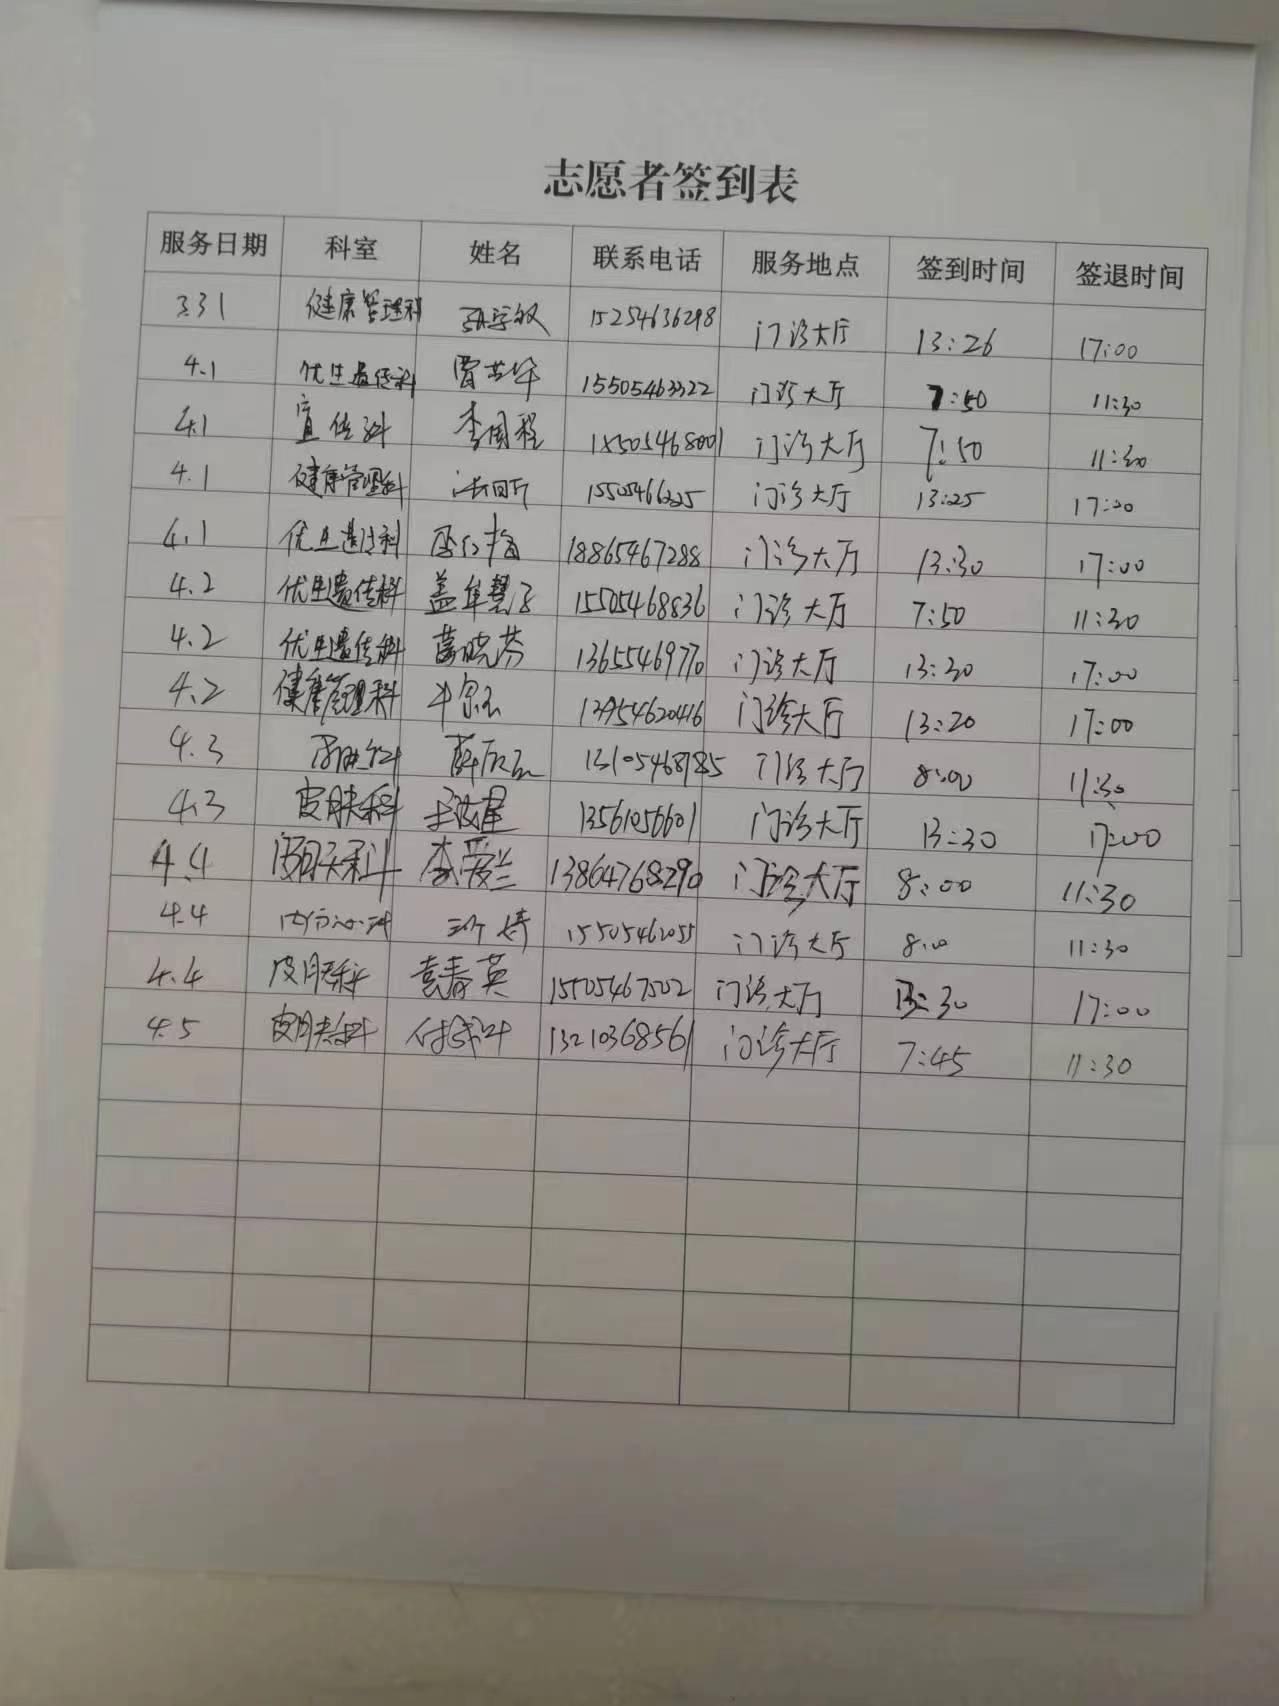 志愿者签到表
服务日期 科室 姓名 联系电话 服务地点 签到时间 签退时间
3.31 健康管理科 15254636298 门诊大厅 13:26 17:00
4.1 优生遗传科 15505463322 门诊大厅 7:50 11:30
4.1 宣传科 李国程 15505468001 门诊大厅 7:50 11:30
4.1 健康管理科 15505466225 门诊大厅 13:25 17:00
4.1 优生遗传科 18865467288 门诊大厅 13:30 17:00
4.2 优生遗传科 盖阜慧子 15505468836 门诊大厅 7:50 11:30
4.2 优生遗传科 葛晓芬 13655469770 门诊大厅 13:30 17:00
4.2 健康管理科 13954620416 门诊大厅 13:20 17:00
4.3 13105468785 门诊大厅 8:00 11:30
4.3 皮肤科 13561056601 门诊大厅 13:30 17:00
4.4 李爱兰 13864768290 门诊大厅 8:00 11:30
4.4 15505462055 门诊大厅 8:00 11:30
4.4 皮肤科 袁春英 15505467502 门诊大厅 13:30 17:00
4.5 皮肤科 13210368561 门诊大厅 7:45 11:30